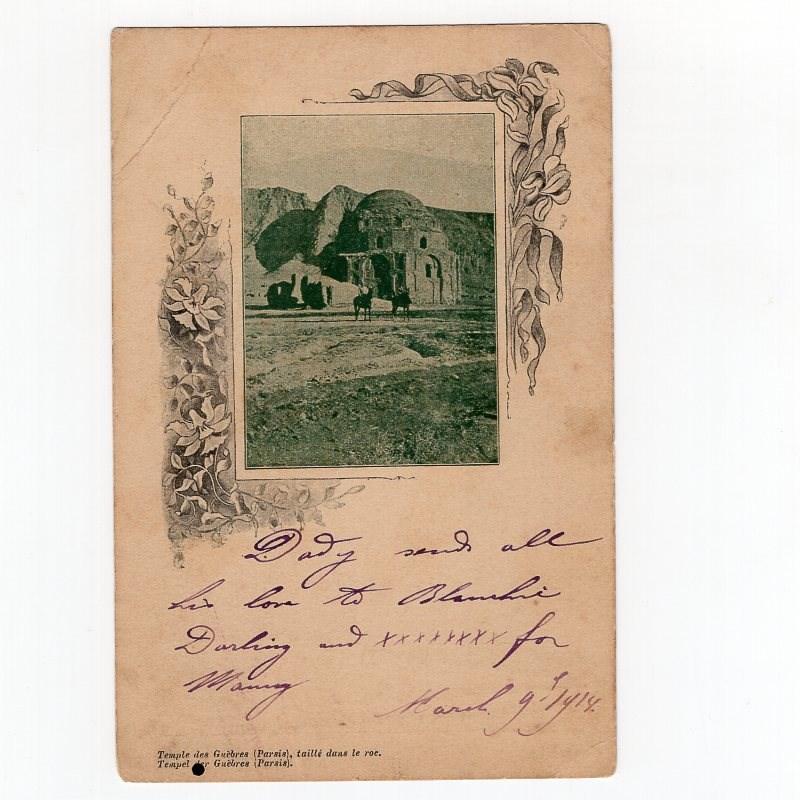 Dady sends all
his love to Blanchie
Darling and xxxxxxxx for
Mamy
March 9th 1914.
Temple des Guèbres (Parsis), taillé dans le roc.
Tempel der Guèbres (Parsis).